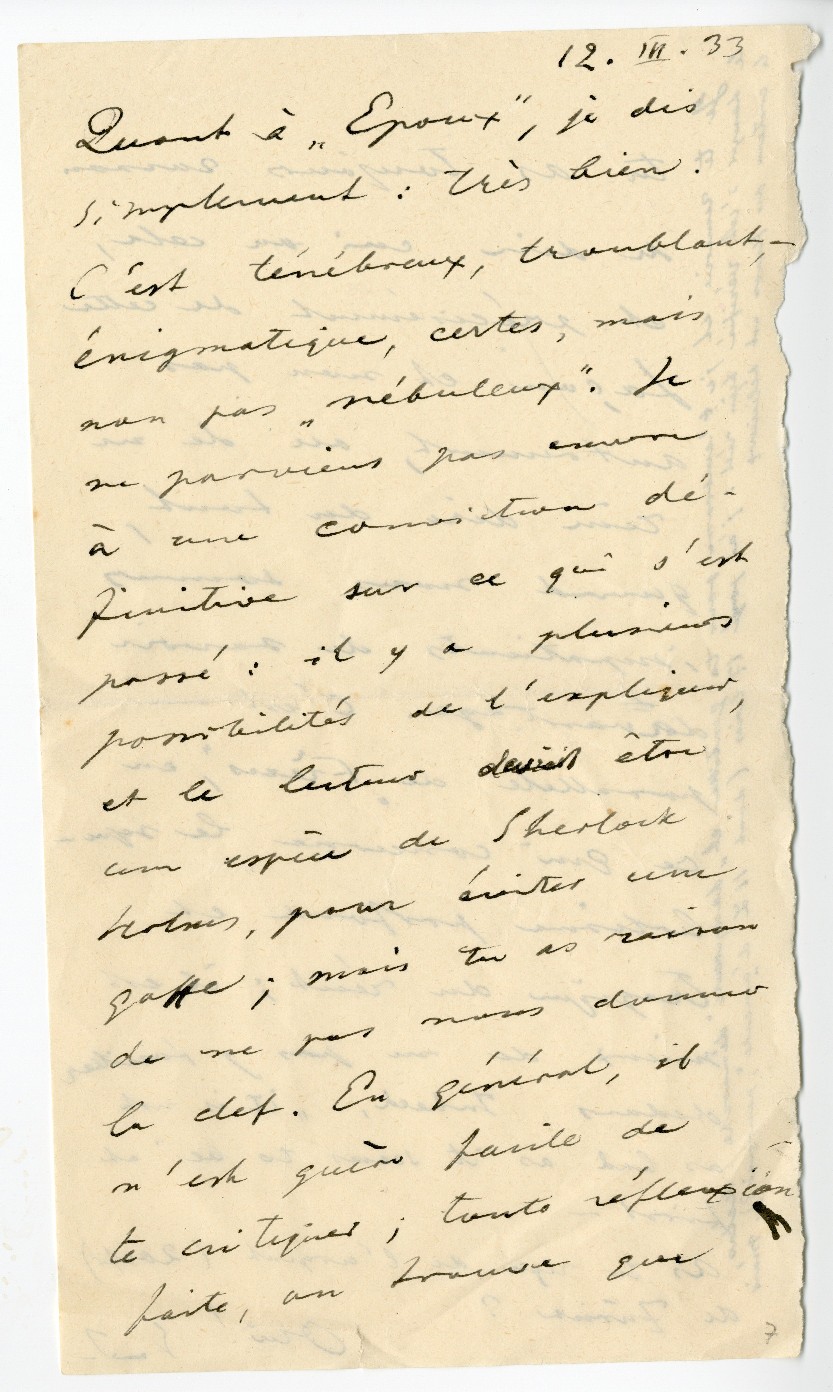 12. III. 33
Quant à „Epoux", je dis
simplement : très bien.
C'est ténébreux, troublant,—
énigmatique, certes, mais
non pas „nébuleux". Je
ne parviens pas encore
à une conviction dé-
finitive sur ce qui s'est
passé : il y a plusieurs
possibilités de l'expliquer,
et le lecteur devrait être
une espèce de Sherlock
Holmes, pour éviter une
gaffe ; mais tu as raison
de ne pas nous donner
la clef. En général, il
n'est guère facile de
te critiquer ; toute réflexion
faite, on trouve que
7